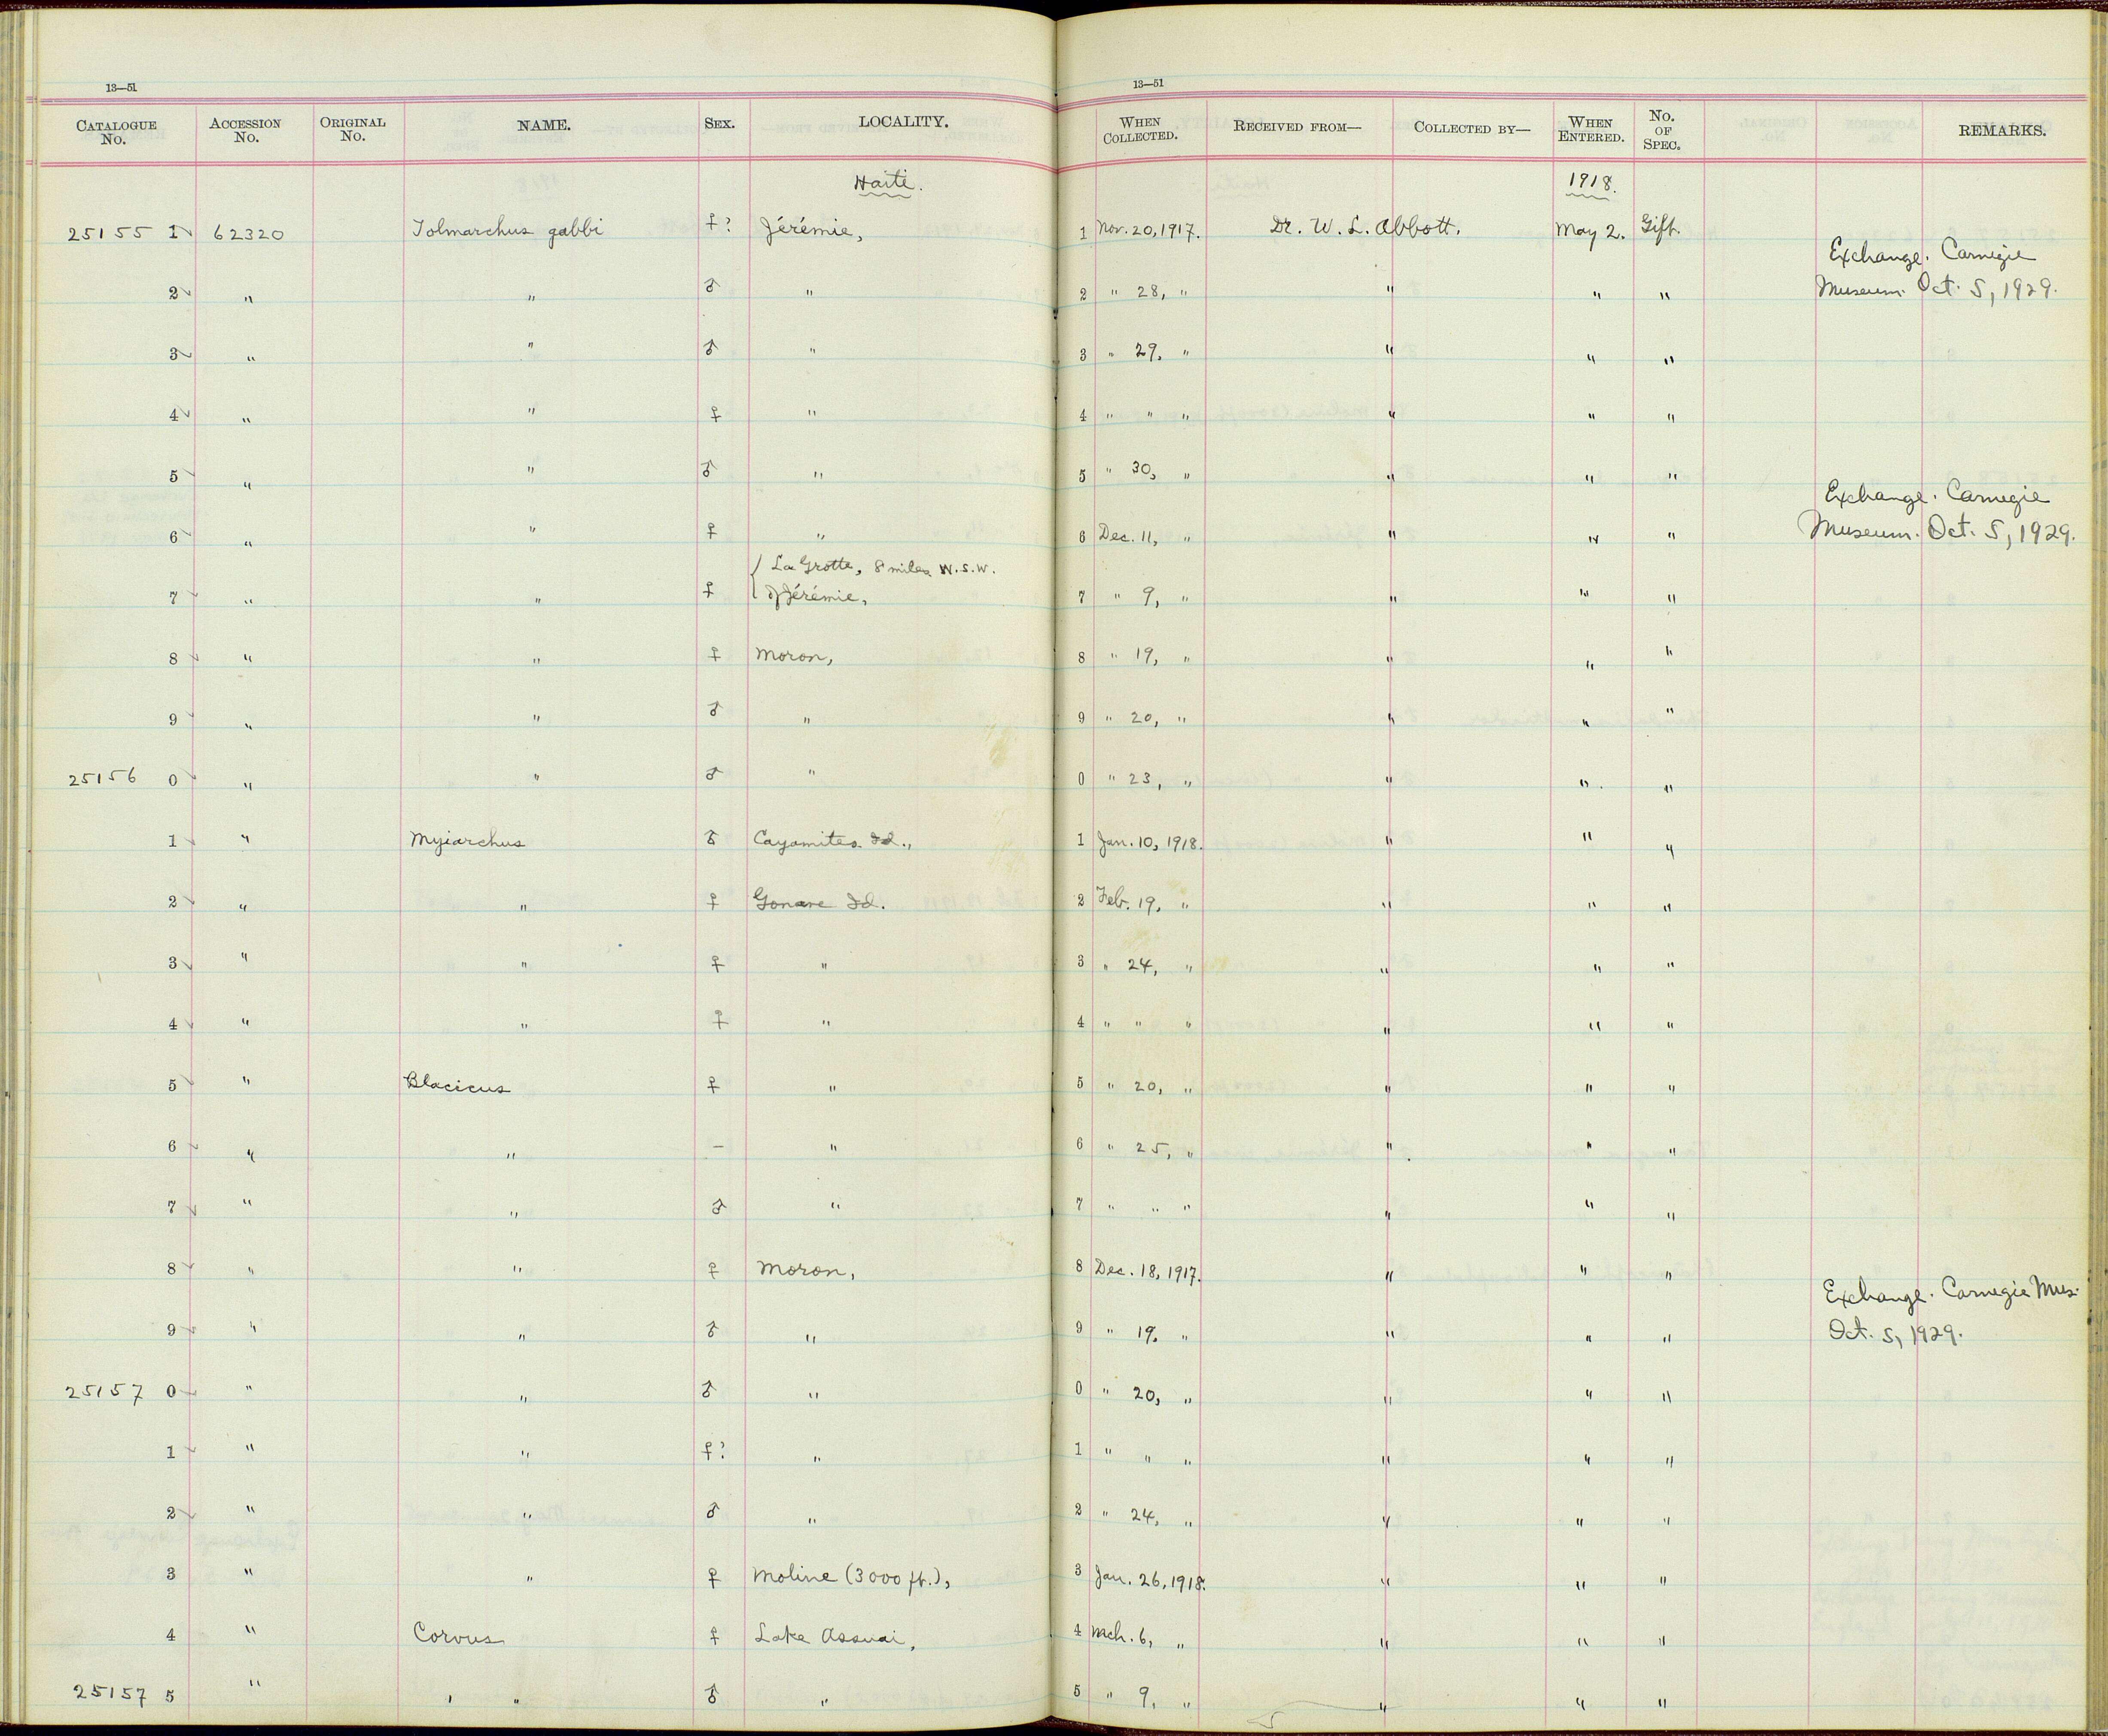 13—51
13—51
CATALOGUE No. ACCESSION No. ORIGINAL No. NAME. SEX. LOCALITY. WHEN COLLECTED. RECEIVED FROM— COLLECTED BY— WHEN ENTERED. No. OF SPEC. REMARKS.
Haiti. 1918.
25155 1 62320 Tolmarchus gabbi ♀? Jérémie, 1 Nov. 20, 1917. Dr. W. L. Abbott. May 2. Gift.
Exchange. Carnegie
2 " " ♂ " 2 " 28, " " " " Museum. Oct. 5, 1929.
3 " " ♂ " 3 " 29, " " " "
4 " " ♀ " 4 " " " " " "
5 " " ♂ " 5 " 30, " " " "
Exchange. Carnegie
6 " " ♀ " 6 Dec. 11, " " " " Museum. Oct. 5, 1929.
La Grotte, 8 miles W.S.W.
7 " " ♀ of Jérémie, 7 " 9, " " " "
8 " " ♀ Moron, 8 " 19, " " " "
9 " " ♂ " 9 " 20, " " " "
25156 0 " " ♂ " 0 " 23, " " " "
1 " Myiarchus ♂ Cayamites Id., 1 Jan. 10, 1918. " " "
2 " " ♀ Gonave Id. 2 Feb. 19, " " " "
3 " " ♀ " 3 " 24, " " " "
4 " " ♀ " 4 " " " " " "
5 " Blacicus ♀ " 5 " 20, " " " "
6 " " – " 6 " 25, " " " "
7 " " ♂ " 7 " " " " " "
8 " " ♀ Moron, 8 Dec. 18, 1917. " " "
Exchange. Carnegie Mus.
9 " " ♂ " 9 " 19, " " " " Oct. 5, 1929.
25157 0 " " ♂ " 0 " 20, " " " "
1 " " ♀? " 1 " " " " " "
2 " " ♂ " 2 " 24, " " " "
3 " " ♀ Moline (3000 ft.), 3 Jan. 26, 1918. " " "
4 " Corvus ♀ Lake Assuai, 4 Mch. 6, " " " "
25157 5 " " " ♂ " 5 " 9, " " " "